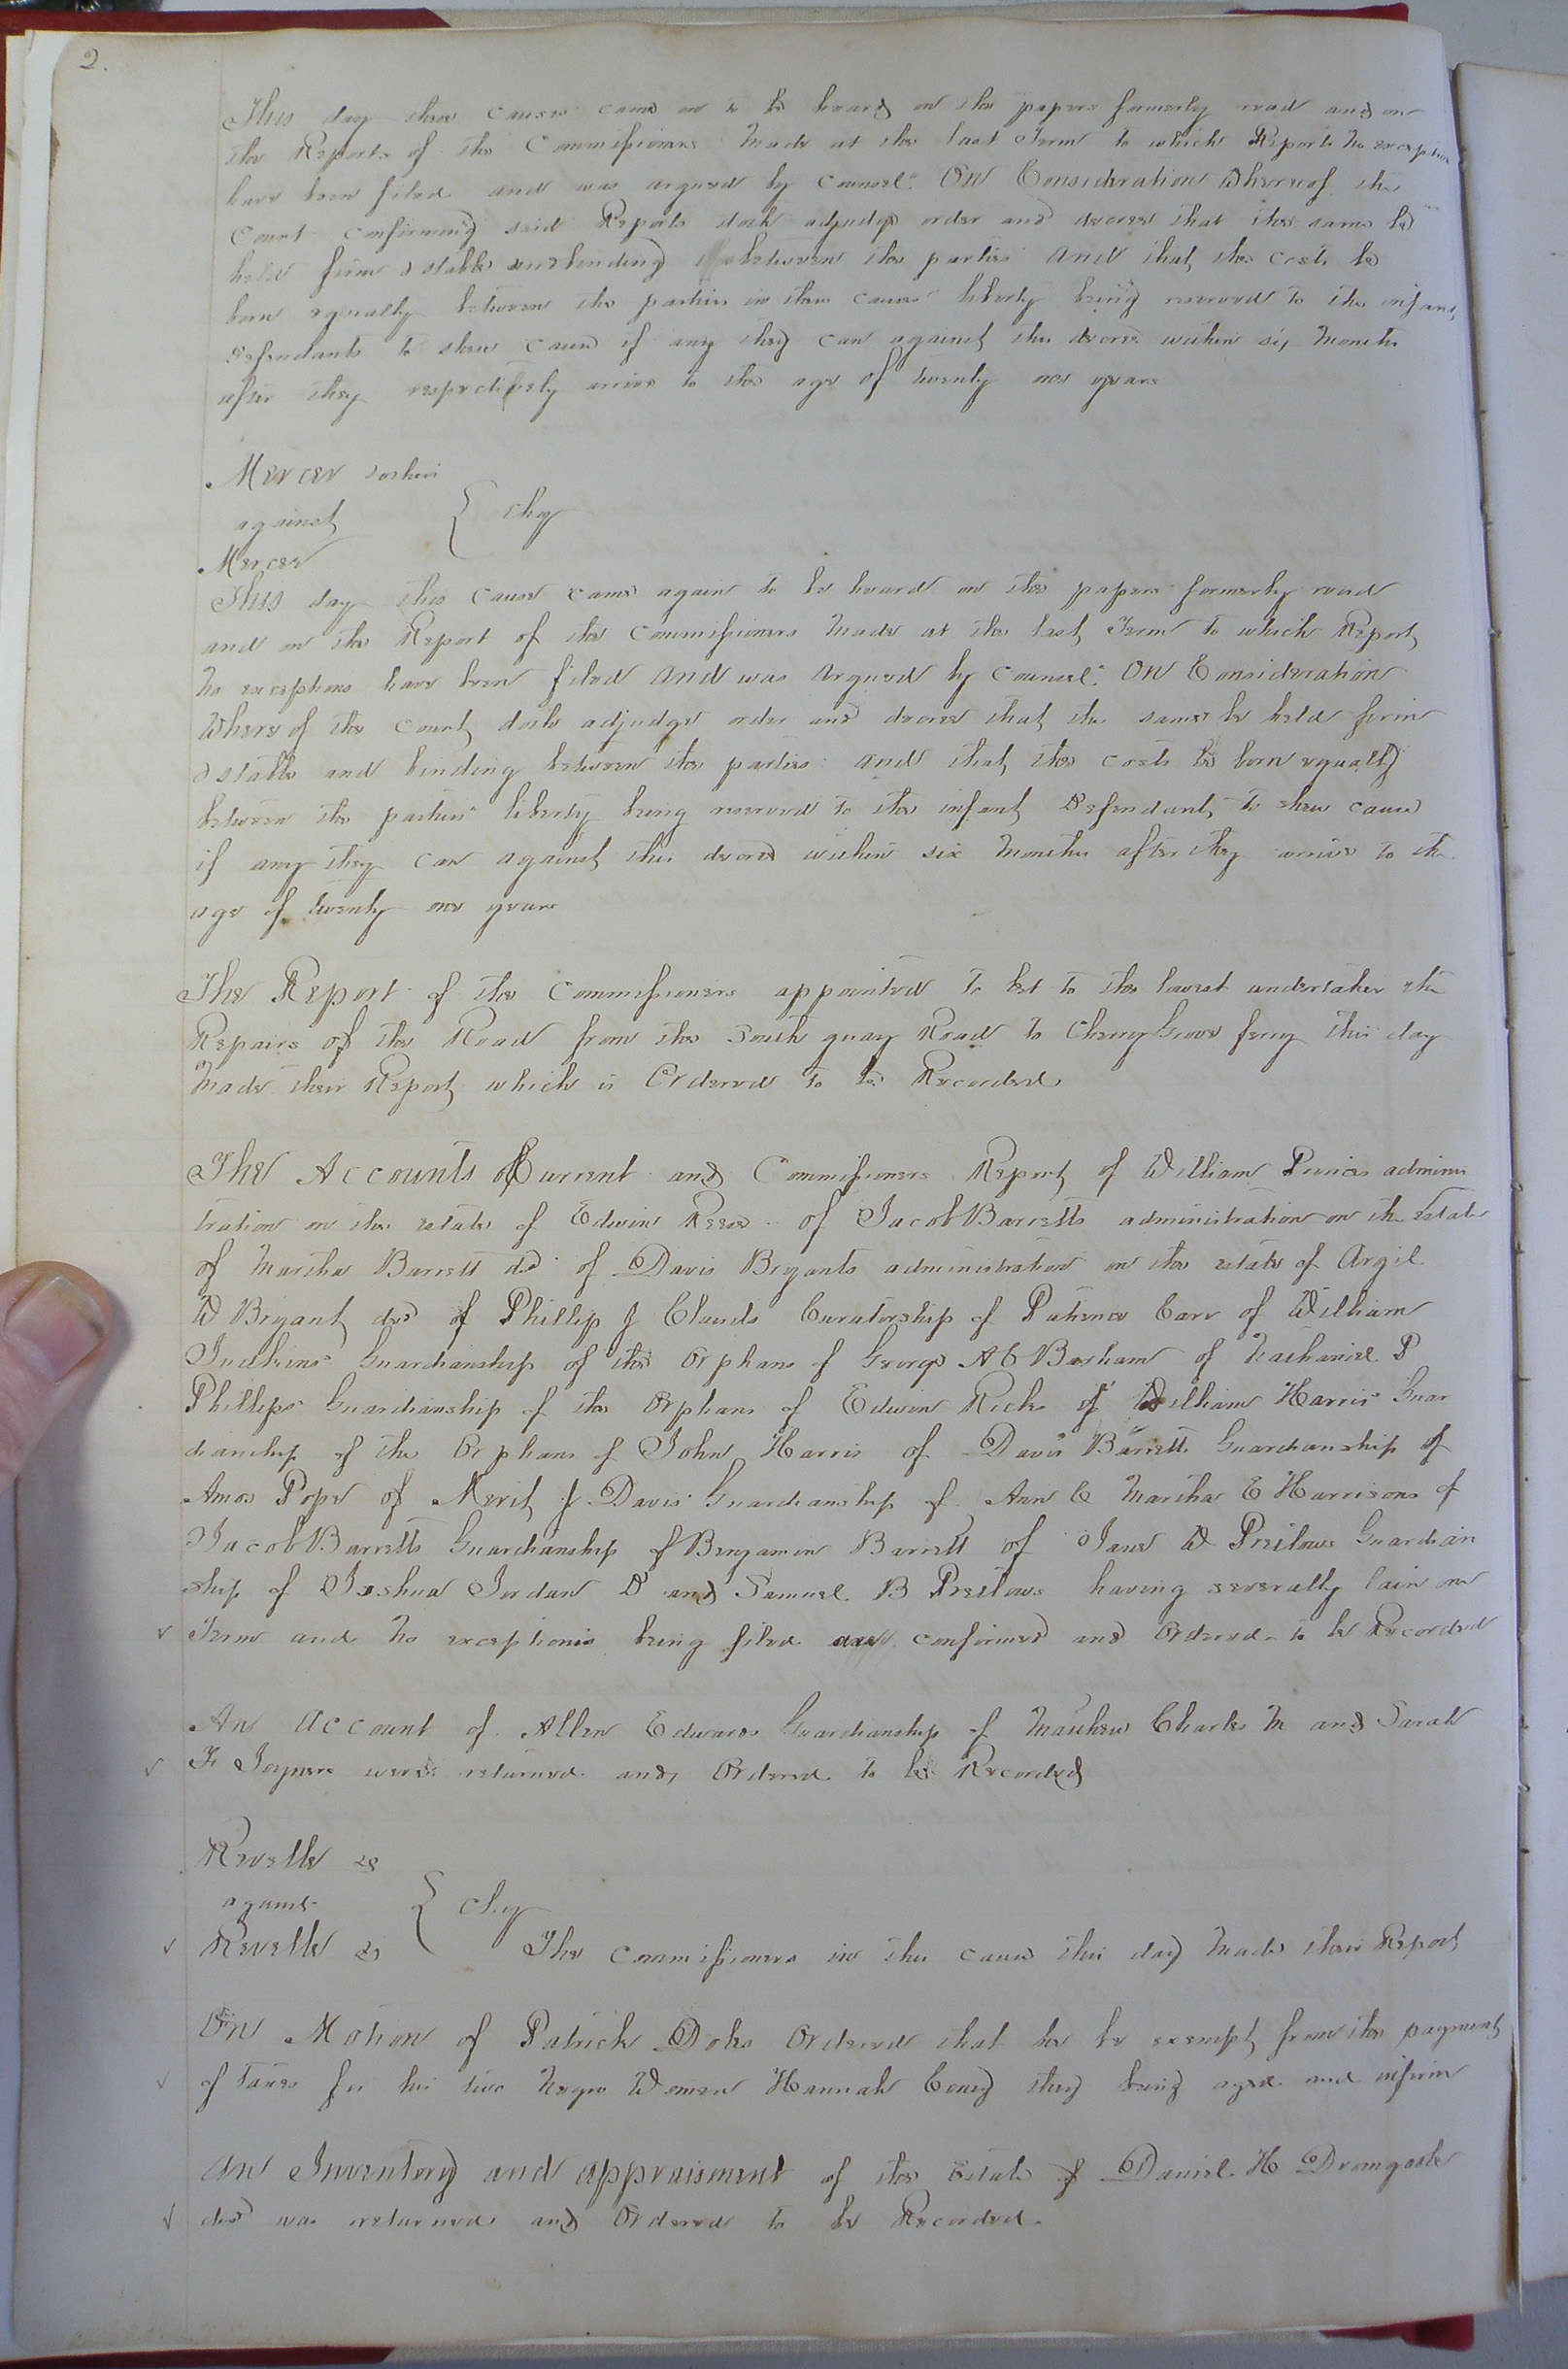 2.
This day these causes came on to be heard on the papers formerly read and on
the Reports of the Commissioners made at the last Term to which Reports no exception
have been filed and was argued by Counsel. On Consideration Whereof the
Court confirming said Reports doth adjudge order and decree that the same be
held firm & stable and binding between the parties and that the costs be
born equally between the parties in these causes liberty being reserved to the infant
defendants to shew cause if any they can against this decree within six months
after they respectively arrive to the age of twenty one years
Mercer &others
against } Chy
Mercer
This day this cause came again to be heard on the papers formerly read
and on the Report of the Commissioners made at the last Term to which Report
no exceptions have been filed and was argued by Counsel. On Consideration
Whereof the Court doth adjudge order and decree that the same be held firm
& stable and binding between the parties and that the costs be born equally
between the parties liberty being reserved to the infant Defendants to shew cause
if any they can against this decree within six months after they arrive to the
age of twenty one years
The Report of the Commissioners appointed to let to the lowest undertaker the
Repairs of the Road from the South quay Road to Cherry Grove ferry this day
made their Report which is Ordered to be Recorded
The Accounts Current and Commissioners Report of William adminis
tration on the estate of Edwin Reese of Jacob Barretts administration on the Estate
of Martha Barrett dcd of Davis Bryants administration on the estate of Argil
W Bryant dcd of Phillip J Clauds Curatorship of Patience Carr of William
Judkins Guardianship of the Orphans of George A C Basham of Nathaniel P
Phillips Guardianship of the Orphans of Edwin Ricks of William Harris Guar
dianship of the Orphans of John Harris of Davis Barretts Guardianship of
Amos Pope of Merit J Davis Guardianship of Ann C Martha E Harrisons of
Jacob Barretts Guardianship of Benjamin Barrett of Jane W Pretlows Guardian
ship of Joshua Jordan D and Samuel B Pretlows having severally lain one
Term and no exceptions being filed are confirmed and Ordered to be Recorded
An Account of Allen Edwards Guardianship of Matthew Charles M and Sarah
F Joyners were returned and Ordered to be Recorded
Revelle &c
against } Chy
Revelle &c The Commissioners in this cause this day made their Report
On Motion of Patrick Doles Ordered that he be exempt from the payment
of taxes for his two Negro Women Hannah they being aged and infirm
An Inventory and appraisment of the Estate of Daniel H Dromgoole
dcd was returned and Ordered to be Recorded